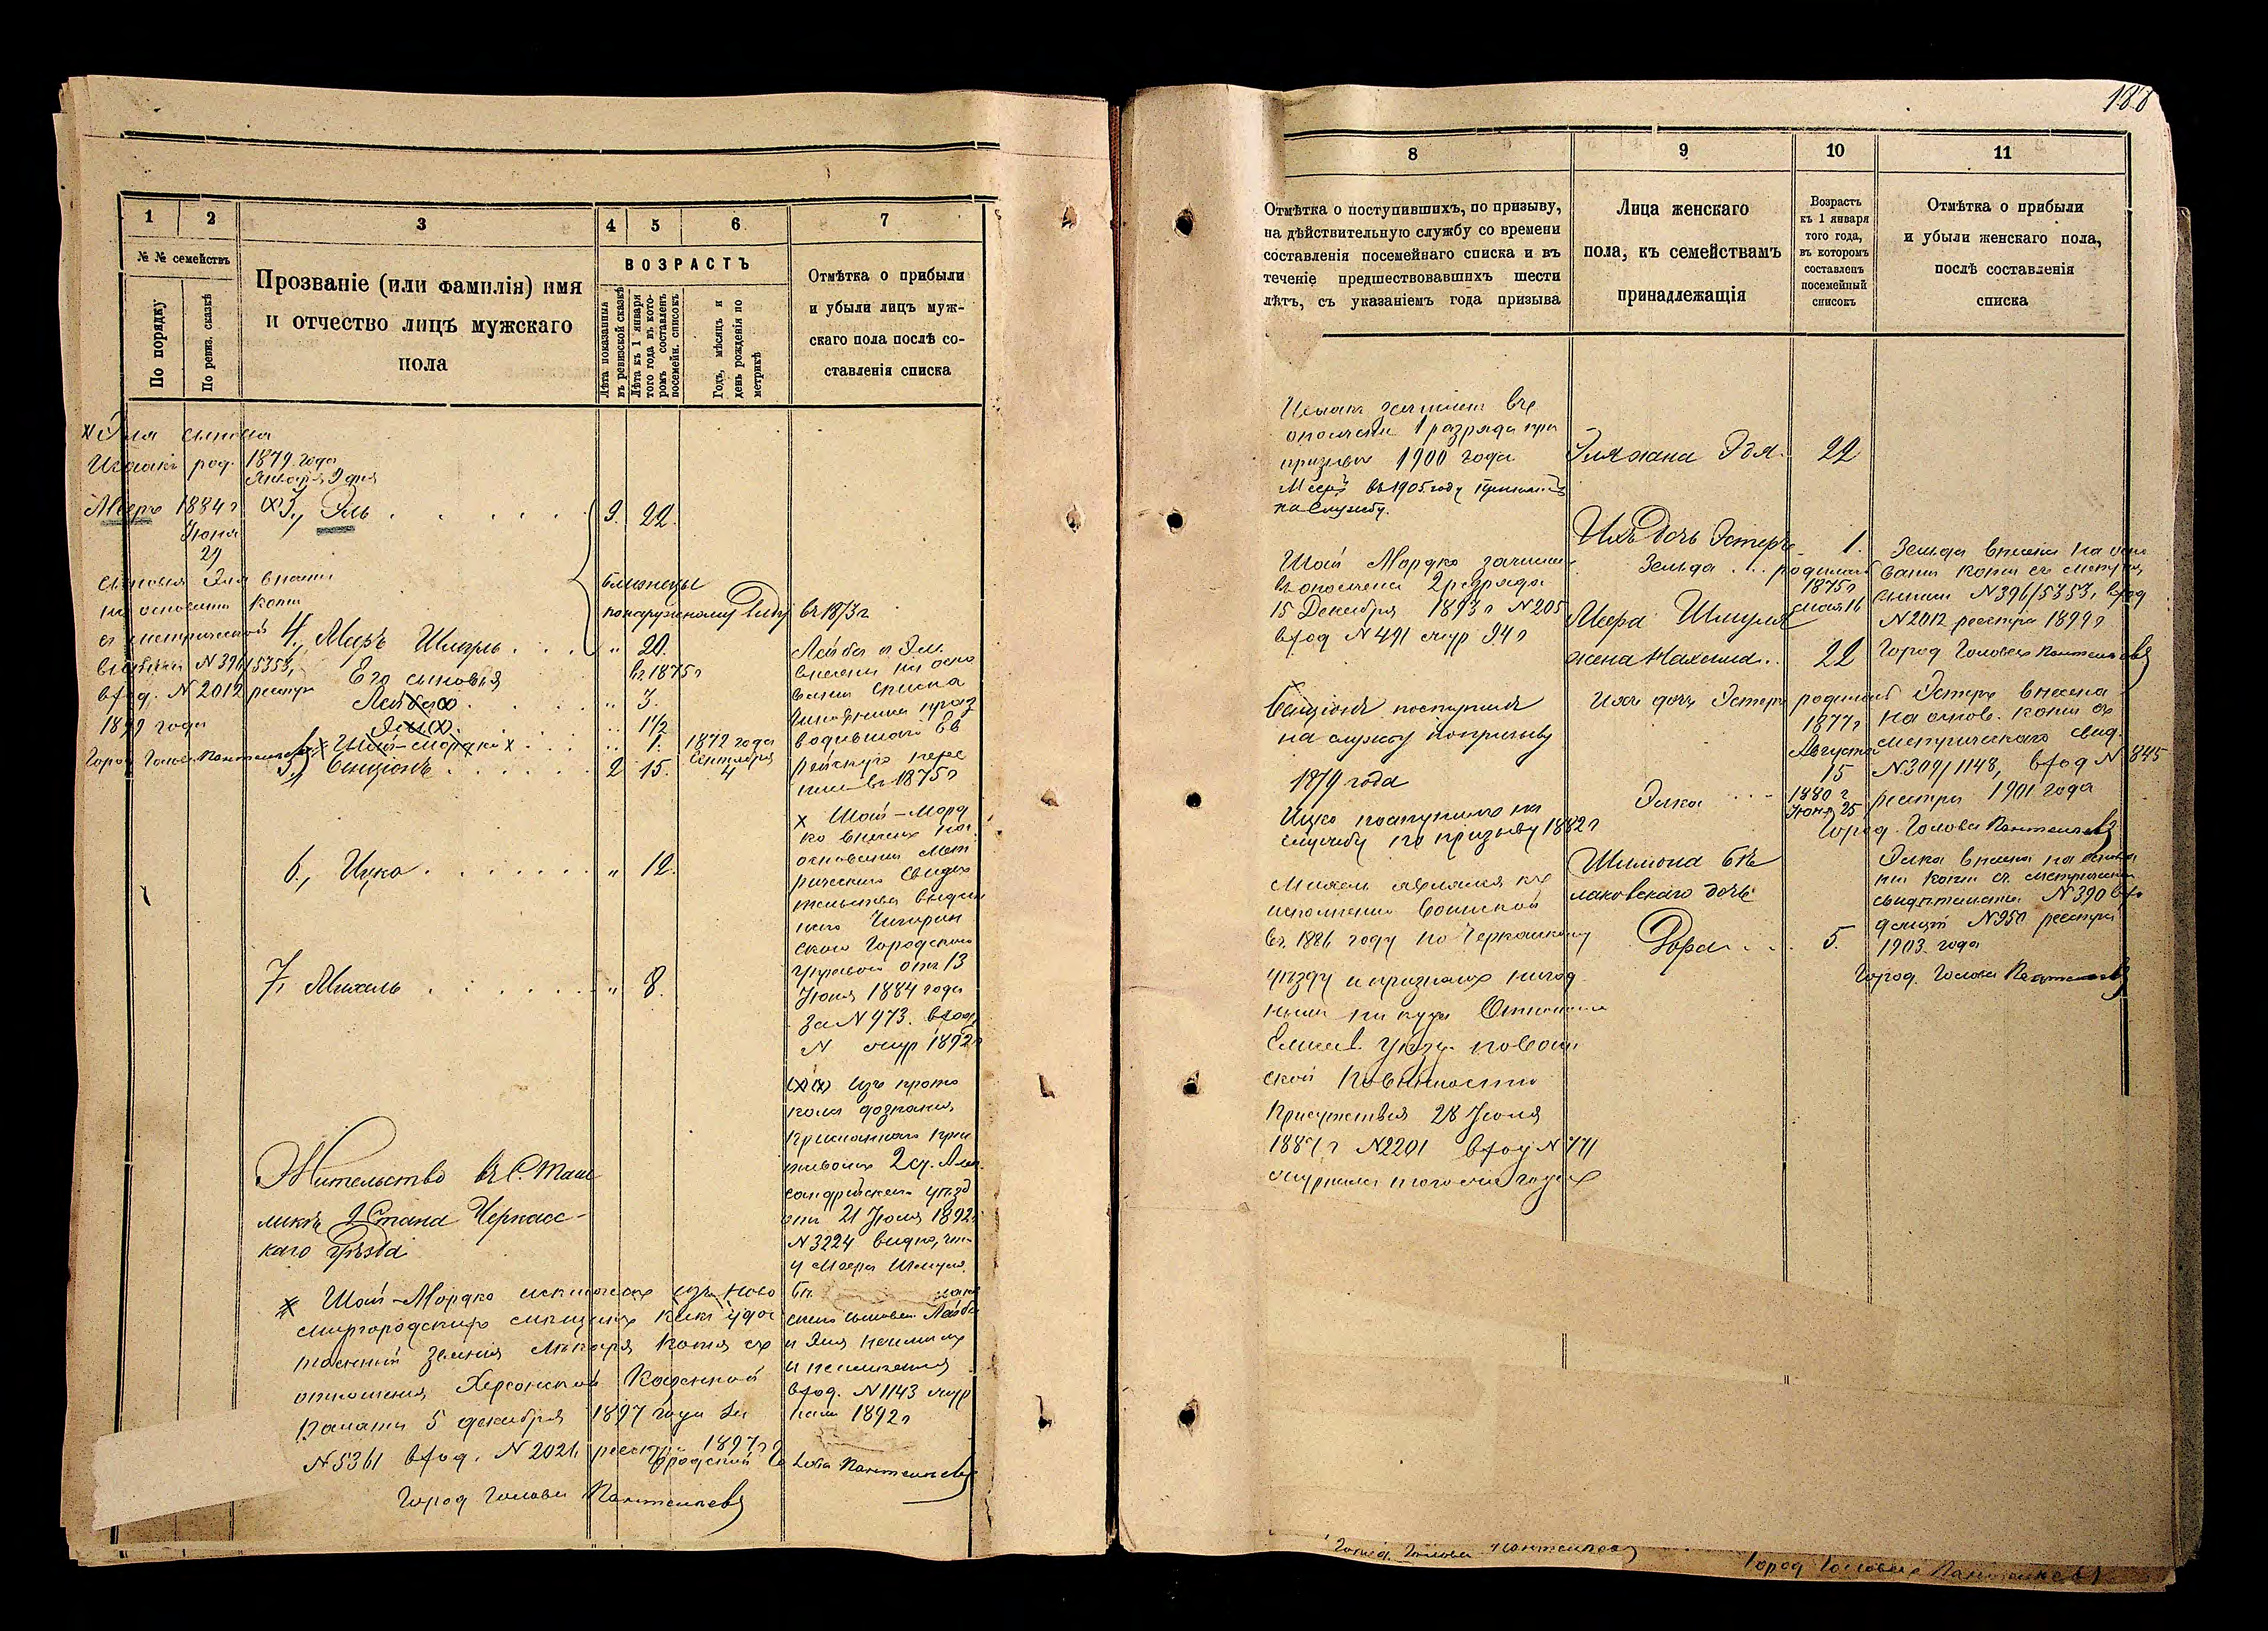 188
1 2 3 4 5 6 7
№ № семействъ
По порядку
По ревиз. сказкѣ
Прозваніе (или фамилія) имя
и отчество лицъ мужскаго
пола
ВОЗРАСТЪ
Лѣта показанныя
въ ревизской сказкѣ
Лѣта къ 1 января
того года въ кото-
ромъ составленъ
посемейн. списокъ
Годъ, мѣсяцъ и
день рожденія по
метрикѣ
Отмѣтка о прибыли
и убыли лицъ муж-
скаго пола послѣ со-
ставленія списка
Эля сыновья
Ицхакъ род. 1879 года
Января 9 дня
Мееръ 1884 г
Іюня
29
3, Эль 9. 22.
сыновья Эля внесены
на основаніи копіи
съ метрической
выписки N 396/5353,
вход. N 2012 реестра
1899 года
Город Голова Пантелѣевъ
близнецы
по наружному виду въ 1873 г
4, Меръ Шмуль " 20.
въ 1875 г
Его сыновья
Лейба " 3.
Эля " 1 1/2
Шай-Мордко " 1. 1872 года
Сентября
4
5, Бенціонъ 2 15.
6, Ицко " 12.
7, Михель " 8.
Лейба и Эля
внесены на осно
ваніи списка
чиновника произ
водившаго Ев
рейскую пере
пись въ 1875 г
х Шай-Морд
ко внесенъ на
основаніи Мет
рическаго Свидѣ
тельства выдан
наго Чигирин
ской Городскою
Управою отъ 13
Іюня 1884 года
за N 473. вход
N жур 1892 г
(х)(х) Изъ прото
кола дознанія,
присланнаго при
ставомъ 2 ст. Алек
сандрійскаго уѣзд
отъ 21 Іюля 1892 г
N 3224 видно, что
у Меера Шмуля
скаго сыновей Лейбы
и Эля не имѣется
вход. N 1143 жур
нала 1892 г
Жительство въ С. Таш
лыкѣ 2 Стана Черкасс-
каго Уѣзда
х Шай-Мордко исключенъ изъ Ново
миргородскихъ мѣщанъ какъ удос
тоенный званія Лѣкаря копія съ
отношенія Херсонской Казенной
Палаты 5 декабря 1897 года за
N 5361 вход. N 2021 реестра 1897 г
Город Голова Пантелѣевъ
Городской Голова Пантелѣевъ
8 9 10 11
Отмѣтка о поступившихъ, по призыву,
на дѣйствительную службу со времени
составленія посемейнаго списка и въ
теченіе предшествовавшихъ шести
лѣтъ, съ указаніемъ года призыва
Лица женскаго
пола, къ семействамъ
принадлежащія
Возрастъ
къ 1 января
того года,
въ которомъ
составленъ
посемейный
списокъ
Отмѣтка о прибыли
и убыли женскаго пола,
послѣ составленія
списка
Ицхакъ зачисленъ въ
ополченіе 1 разряда при
призывѣ 1900 года
Мееръ въ 1905 году принятъ
на Службу.
Шай Мордко зачислен
въ ополченіе 2 разряда
15 Декабря 1893 г N 205
вход N 491 жур 94 г
Бенціонъ поступилъ
на службу по призыву
1879 года
Ицко поступилъ на
службу по призыву 1882 г
Михель являлся къ
исполненію воинской
въ 1886 году по Черкасскому
уѣзду и признанъ негод
нымъ
Елисав. Уѣзд. по воин
ской повинности
Присутствія 28 Іюля
1887 г N 2201 вход N 771
журнала того же года
Эля жена Эдя 22
Ихъ дочь Эстеръ 1.
Зельда родилась
1875 г
мая 16
Меера Шмуля
жена Нахема 22
Ихъ дочь Эстеръ родилась
1877 г
Августа
15
Элка 1880 г
Іюня 25
Шимона Бѣ
лаковскаго дочь
Дора 5.
Зельда внесена на осно
ваніи копіи съ метрич.
выписи N 396/5353, вход
N 2012 реестра 1899 г
Город Голова Пантелѣевъ
Эстеръ внесена
на основ. копіи съ
метрическаго свид.
N 309/1148, вход N 845
реестра 1901 года
Город. Голова Пантелѣевъ
Элка внесена на основа
ніи копіи съ метрическаго
свидѣтельства N 390 вхо
дящій N 950 реестра
1903 года
Город. Голова Пантелѣевъ
Город. Голова Пантелѣевъ
Город Голова Пантелѣевъ